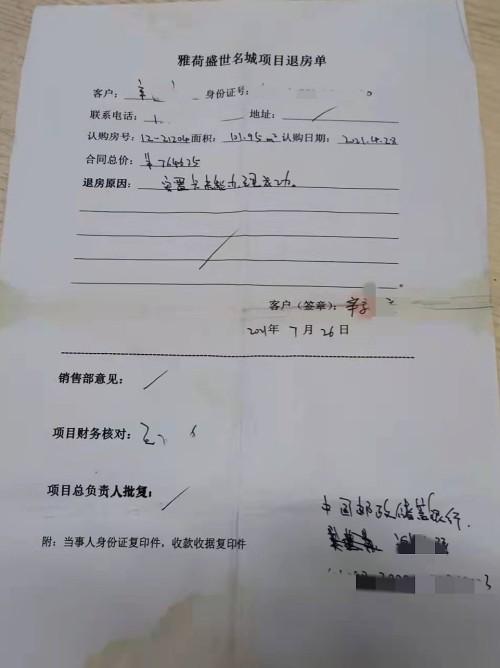 雅荷盛世名城项目退房单
客户： 身份证号：
联系电话： 地址：
认购房号：12-21204 面积：101.95m² 认购日期：2021.4.28
合同总价：¥764625
退房原因：
客户（签章）：
2021年 7月 26日
销售部意见：
项目财务核对：
项目总负责人批复：
中国邮政储蓄银行.
附：当事人身份证复印件，收款收据复印件